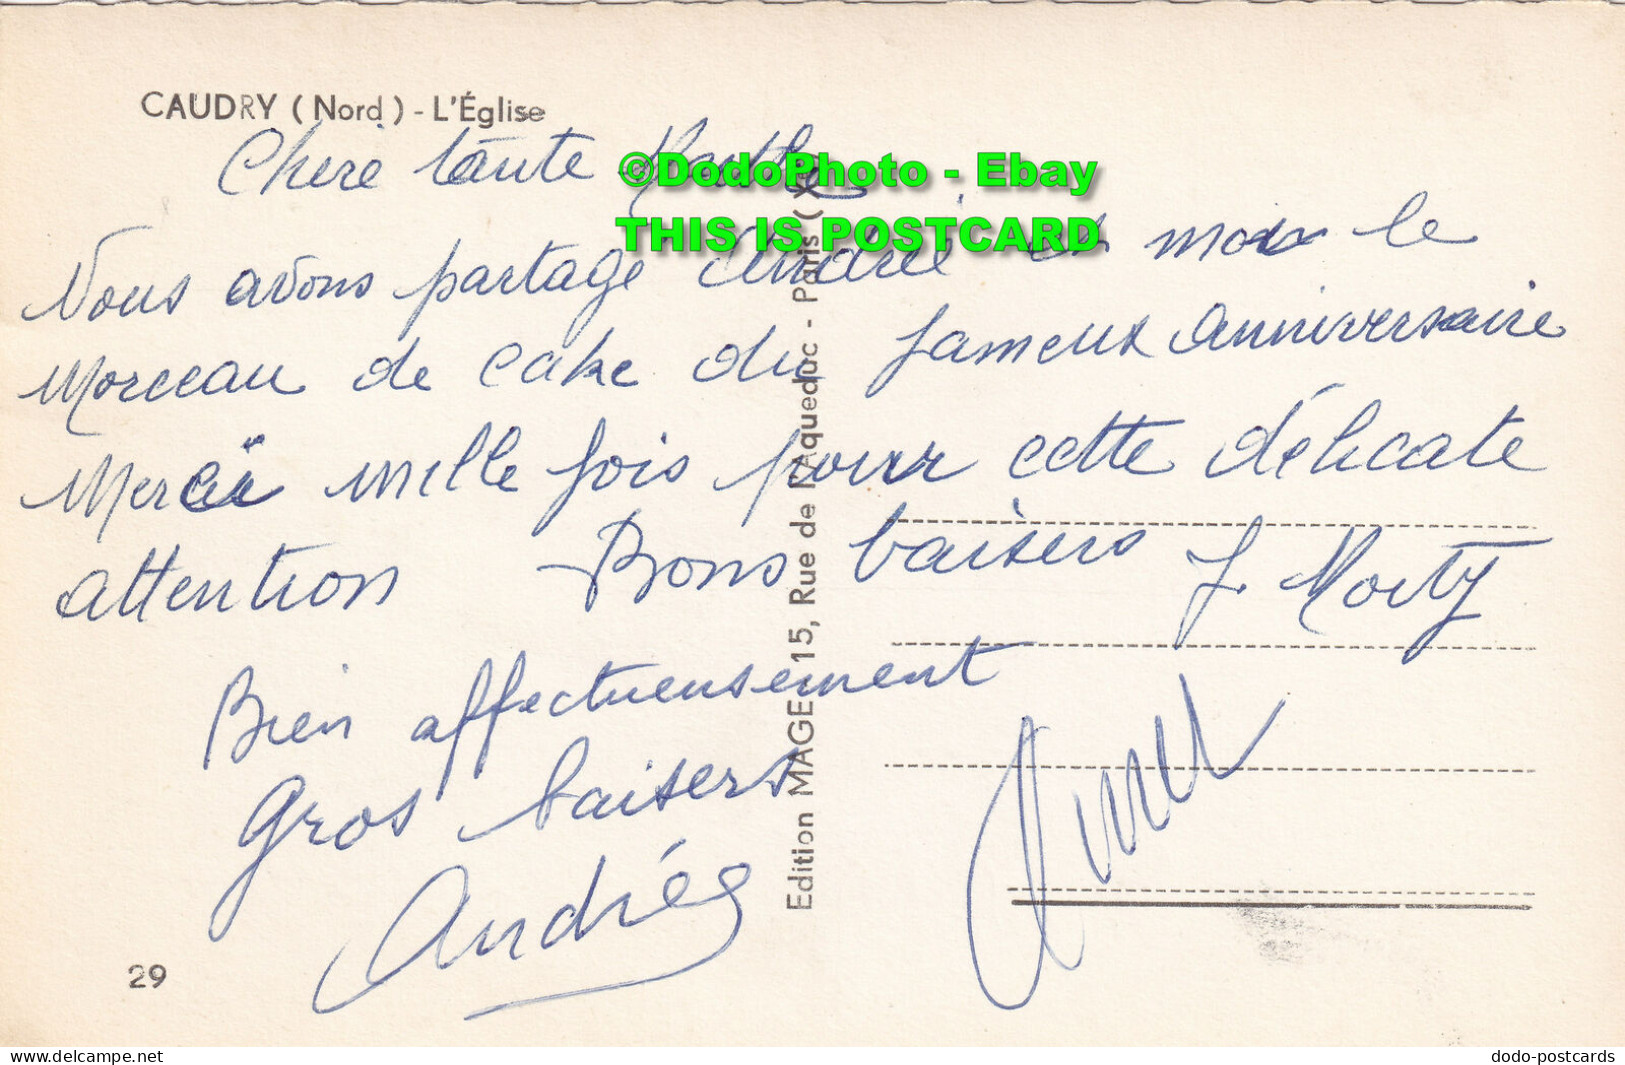 CAUDRY (Nord) - L'Église
Chère tante Marthe
©DodoPhoto - Ebay
THIS IS POSTCARD
Nous avons partagé Andrée et moi le
Morceau de cake du fameux anniversaire
Merci mille fois pour cette délicate
attention Bons baisers
Bien affectueusement
Gros baisers
Andrée
Edition MAGE 15, Rue de l'Aqueduc - Paris (Xe)
29
delcampe.net
dodo-postcards